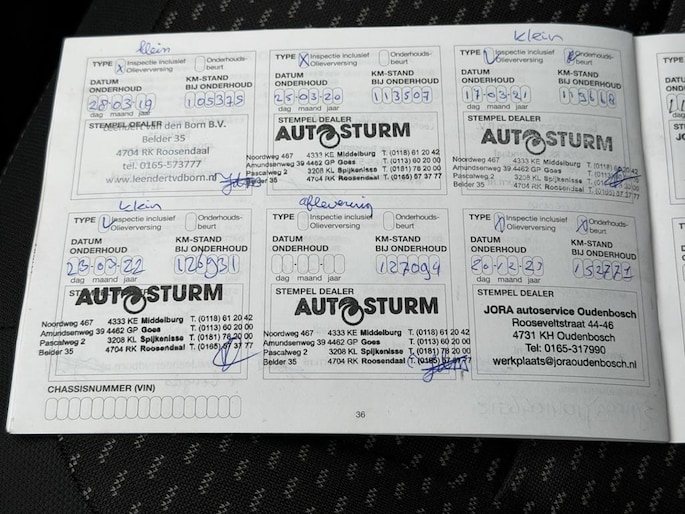 klein
TYPE X Inspectie inclusief Olieverversing Onderhouds-beurt
DATUM ONDERHOUD KM-STAND BIJ ONDERHOUD
28-03-19 105375
dag maand jaar
STEMPEL DEALER
Leendert van den Born B.V.
Belder 35
4704 RK Roosendaal
tel. 0165-573777
www.leendertvdborn.nl
TYPE X Inspectie inclusief Olieverversing Onderhouds-beurt
DATUM ONDERHOUD KM-STAND BIJ ONDERHOUD
25-03-20 113507
dag maand jaar
STEMPEL DEALER
AUTOSTURM
Noordweg 467 4333 KE Middelburg T. (0118) 61 20 42
Amundsenweg 39 4462 GP Goes T. (0113) 60 20 00
Pascalweg 2 3208 KL Spijkenisse T. (0181) 76 20 00
Belder 35 4704 RK Roosendaal T. (0165) 57 37 77
klein
TYPE Inspectie inclusief Olieverversing Onderhouds-beurt
DATUM ONDERHOUD KM-STAND BIJ ONDERHOUD
17-03-21
dag maand jaar
STEMPEL DEALER
AUTOSTURM
Noordweg 467 4333 KE Middelburg T. (0118) 61 20 42
Amundsenweg 39 4462 GP Goes
Pascalweg 2 3208 KL Spijkenisse
Belder 35 4704 RK Roosendaal T. (0165) 57 37 77
klein
TYPE Inspectie inclusief Olieverversing Onderhouds-beurt
DATUM ONDERHOUD KM-STAND BIJ ONDERHOUD
23-03-22 126931
dag maand jaar
STEMPEL DEALER
AUTOSTURM
Noordweg 467 4333 KE Middelburg T. (0118) 61 20 42
Amundsenweg 39 4462 GP Goes T. (0113) 60 20 00
Pascalweg 2 3208 KL Spijkenisse T. (0181) 76 20 00
Belder 35 4704 RK Roosendaal T. (0165) 57 37 77
aflevering
TYPE Inspectie inclusief Olieverversing Onderhouds-beurt
DATUM ONDERHOUD KM-STAND BIJ ONDERHOUD
127094
dag maand jaar
STEMPEL DEALER
AUTOSTURM
Noordweg 467 4333 KE Middelburg T. (0118) 61 20 42
Amundsenweg 39 4462 GP Goes T. (0113) 60 20 00
Pascalweg 2 3208 KL Spijkenisse T. (0181) 76 20 00
Belder 35 4704 RK Roosendaal T. (0165) 57 37 77
TYPE X Inspectie inclusief Olieverversing X Onderhouds-beurt
DATUM ONDERHOUD KM-STAND BIJ ONDERHOUD
20-12-23 152771
dag maand jaar
STEMPEL DEALER
JORA autoservice Oudenbosch
Rooseveltstraat 44-46
4731 KH Oudenbosch
Tel: 0165-317990
werkplaats@joraoudenbosch.nl
CHASSISNUMMER (VIN)
36